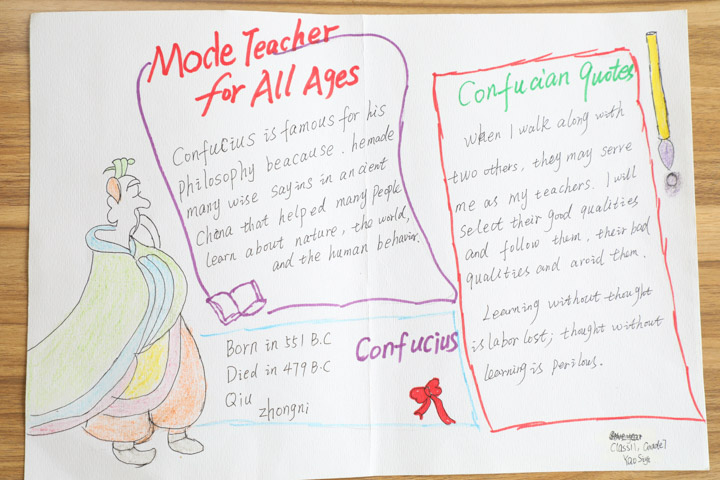 Mode Teacher
for All Ages
Confucius is famous for his
philosophy beacause . he made
many wise sayins in ancient
China that helped many people
learn about nature, the world,
and the human behavior.
Born in 551 B.C
Died in 479 B.C
Qiu
zhongni
Confucius
Confucian Quotes
When I walk along with
two others, they may serve
me as my teachers. I will
select their good qualities
and follow them, their bad
qualities and avoid them.
Learning without thought
is labor lost; thought without
learning is perilous.
Class11, Grade7